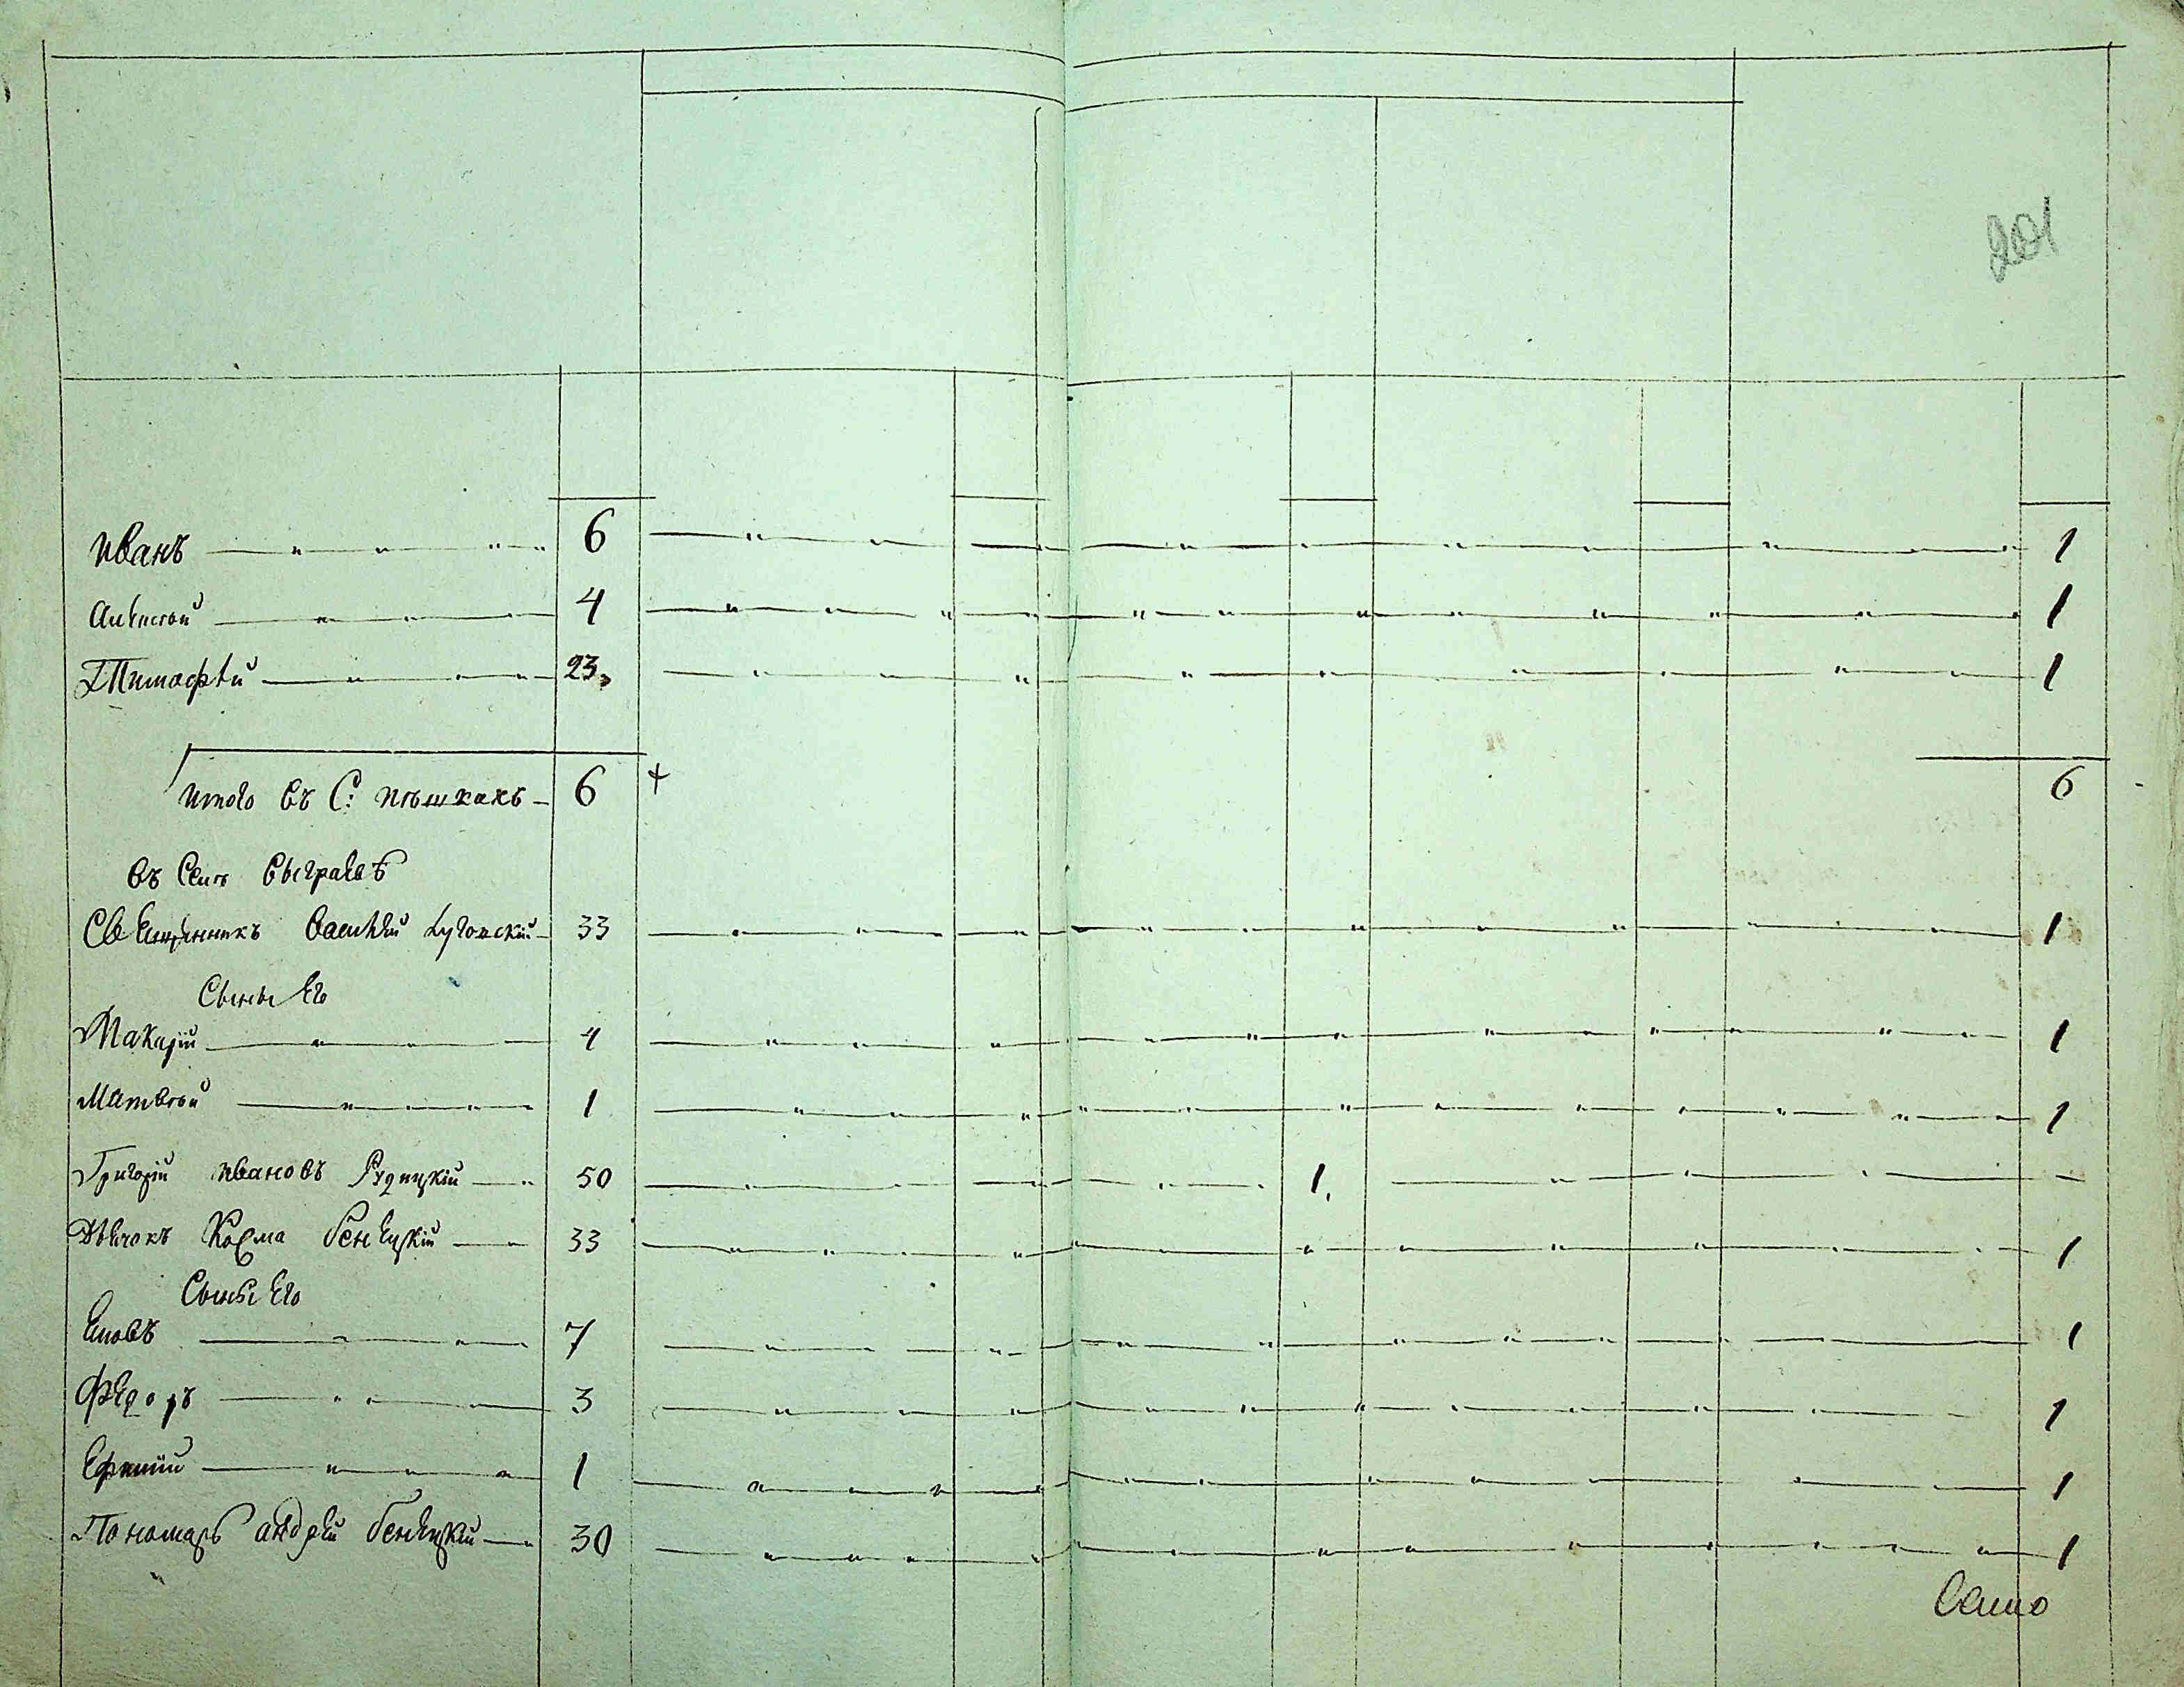 201
Иванъ 6 1
Алексѣй 4 1
Тимофей 23 1
Итого въ С: Пѣшкахъ 6 + 6
Въ Селѣ Выграевѣ
Священникъ Василий 33 1
Сыны Его
Макарій 4 1
Матвѣй 1 1
Григорій Ивановъ Рудницкій 50 1
Дьячокъ Козма Бенецкій 33 1
Сыны Его
7 1
Федоръ 3 1
Ефимій 1 1
Пономарь Андрей Бенецкій 30 1